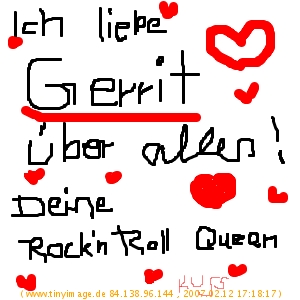 Ich liebe
Gerrit
über alles!
Deine
Rock'n Roll Queen
KUSS
( www.tinyimage.de 84.138.96.144 , 2007.02.12 17:18:17 )